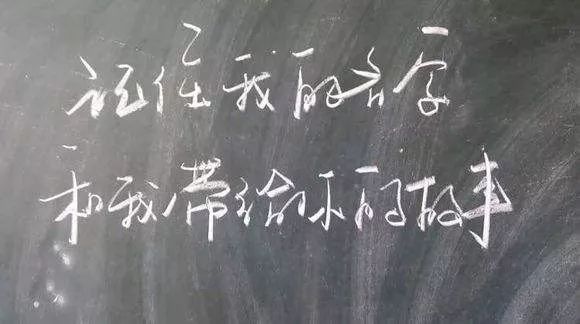 记住我的名字
和我带给你的故事